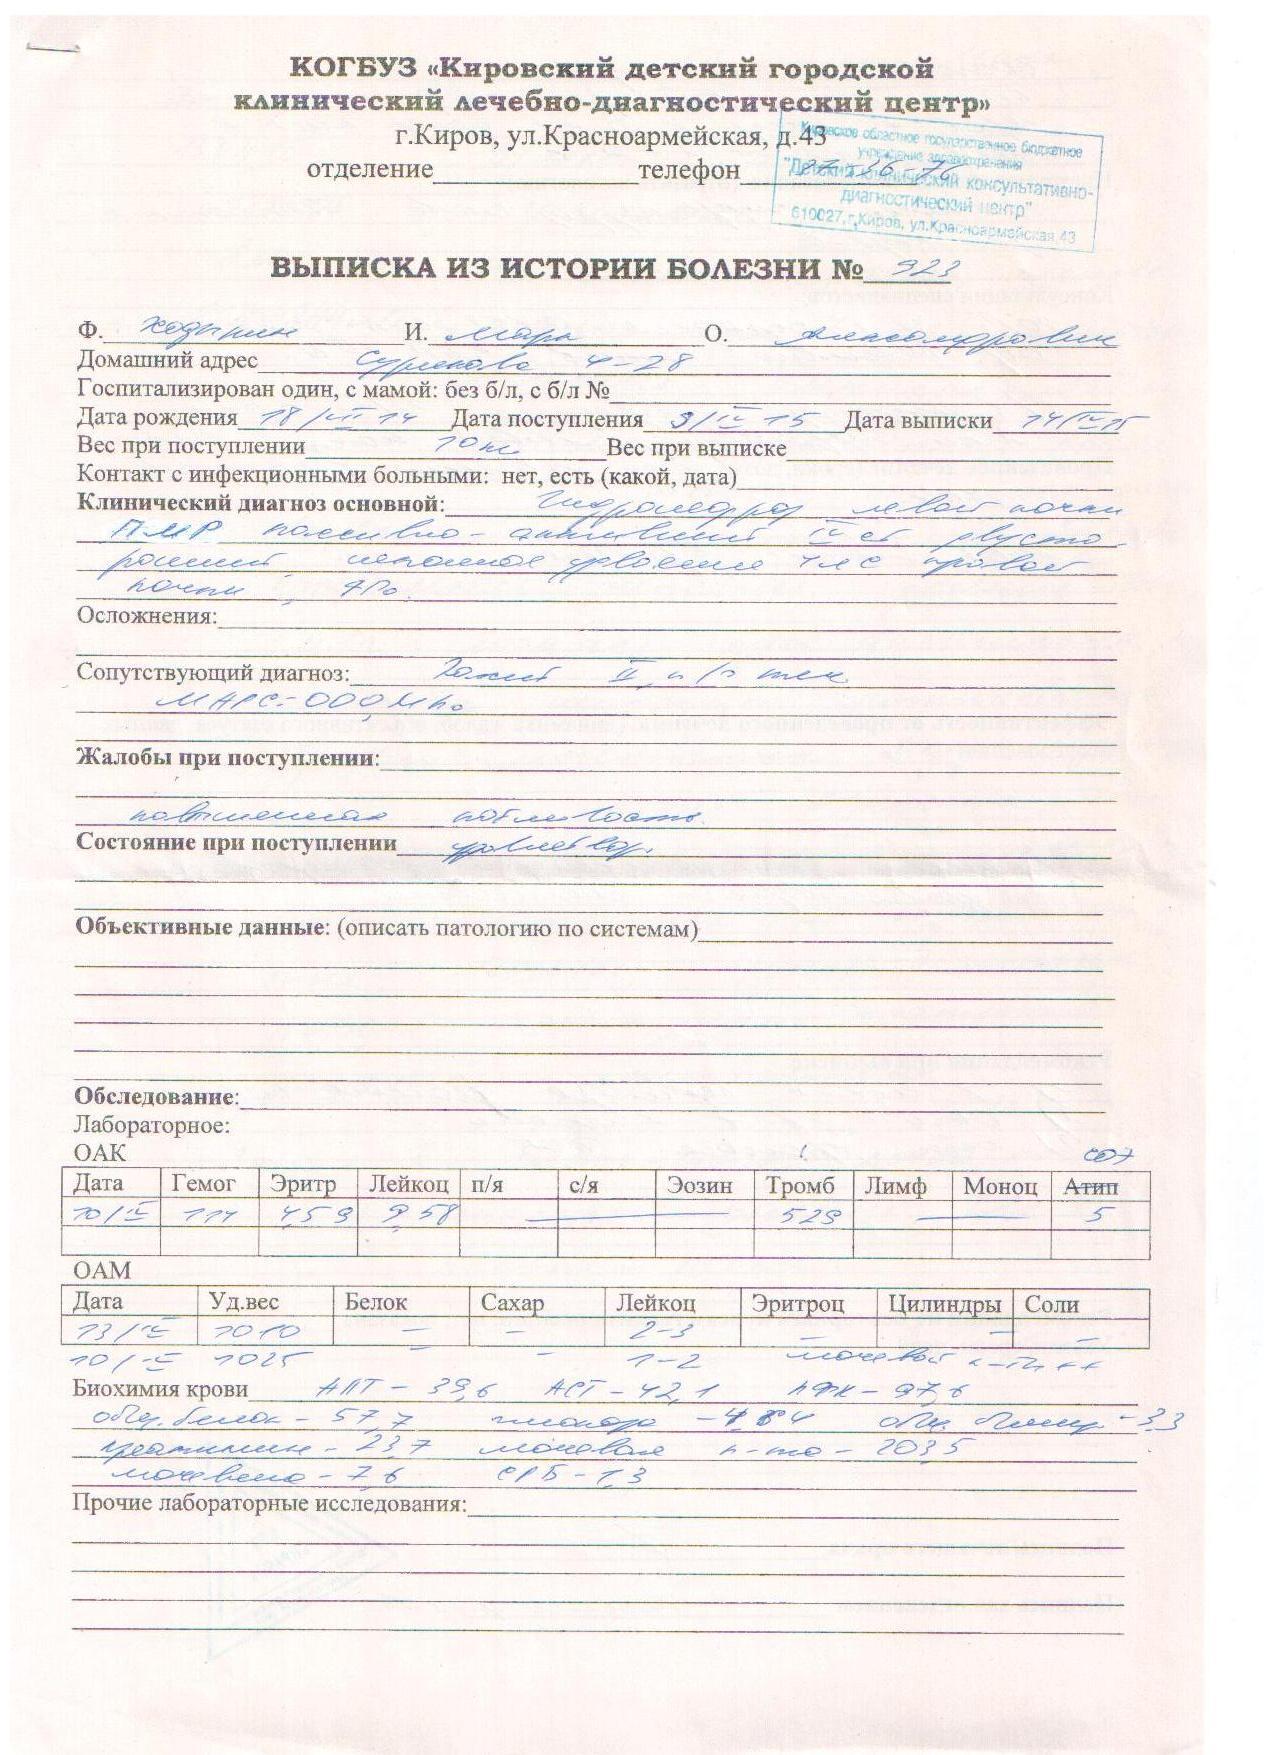 КОГБУЗ «Кировский детский городской
клинический лечебно-диагностический центр»
г.Киров, ул.Красноармейская, д.43
Кировское областное государственное бюджетное
учреждение здравоохранения
"Детский клинический консультативно-
диагностический центр"
610027,г.Киров, ул.Красноармейская 43
отделение телефон 76
ВЫПИСКА ИЗ ИСТОРИИ БОЛЕЗНИ № 923
Ф. Ходырин И. Марк О. Александрович
Домашний адрес Сурикова 4-28
Госпитализирован один, с мамой: без б/л, с б/л №
Дата рождения 18/ 14 Дата поступления 9/IV 15 Дата выписки 14/IV 15
Вес при поступлении 10 кг Вес при выписке
Контакт с инфекционными больными: нет, есть (какой, дата)
Клинический диагноз основной: Гидронефроз левой почки
ПМР пассивно-активный IV ст двусто-
ронний, неполное удвоение ЧЛС правой
почки,
Осложнения:
Сопутствующий диагноз: Рахит II, п/о теч.
МАРС: ООО,
Жалобы при поступлении:
повышенная потливость.
Состояние при поступлении удовлетвор.
Объективные данные: (описать патологию по системам)
Обследование:
Лабораторное:
ОАК СОЭ
Дата Гемог Эритр Лейкоц п/я с/я Эозин Тромб Лимф Моноц Атип
10/IV 111 4,59 9,58 — 529 — 5
ОАМ
Дата Уд.вес Белок Сахар Лейкоц Эритроц Цилиндры Соли
13/IV 1010 — – 2-3 – – –
10/IV 1025 – – 1-2 мочевой к-ты ++
Биохимия крови АЛТ – 39,6 АСТ – 42,1 – 97,6
общ. белок – 57,7 глюкоза – общ. билир. – 3,3
креатинин – 23,7 мочевая к-та – 203,5
мочевина – 7,6 СРБ – 1,3
Прочие лабораторные исследования: